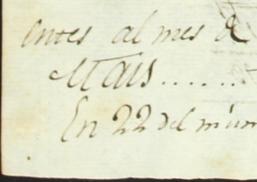 entes al mes de
Mais......
En 22 del mism